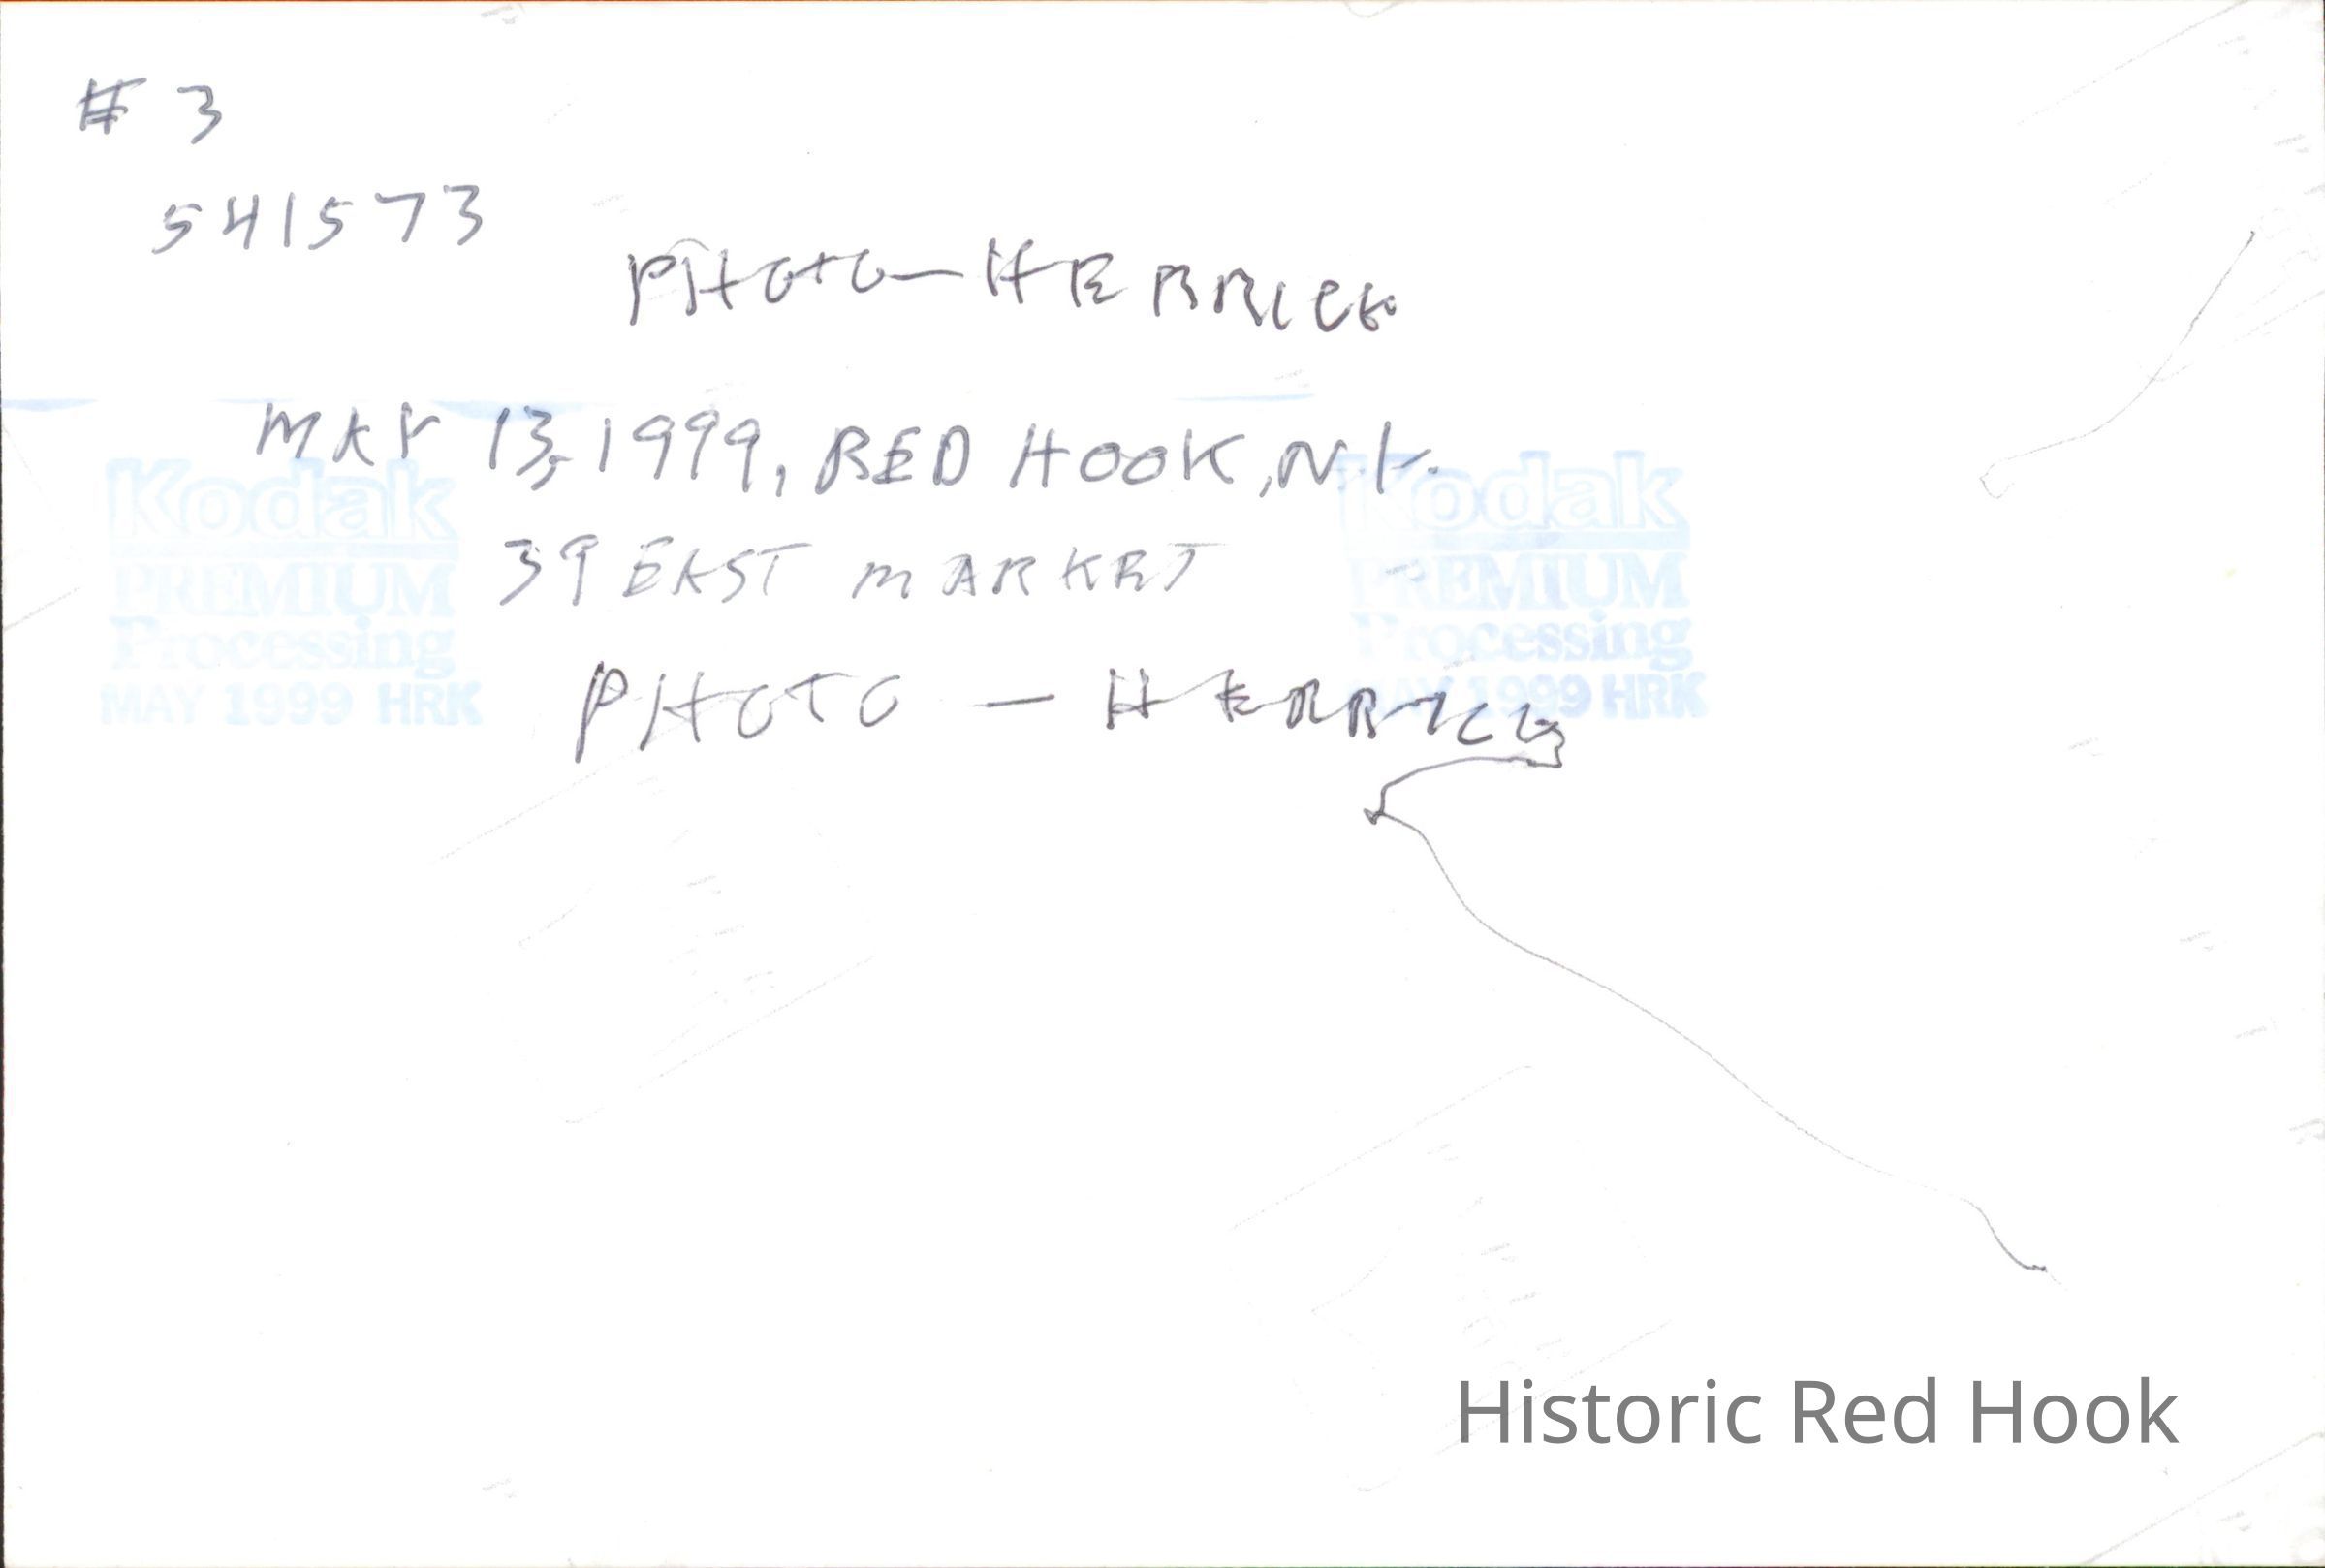 # 3
541573
PHOTO - HERRICK
MAY 13, 1999, RED HOOK, N.Y.
39 EAST MARKET
PHOTO - HERRICK
Kodak
PREMIUM
Processing
MAY 1999 HRK
Kodak
PREMIUM
Processing
MAY 1999 HRK
Historic Red Hook